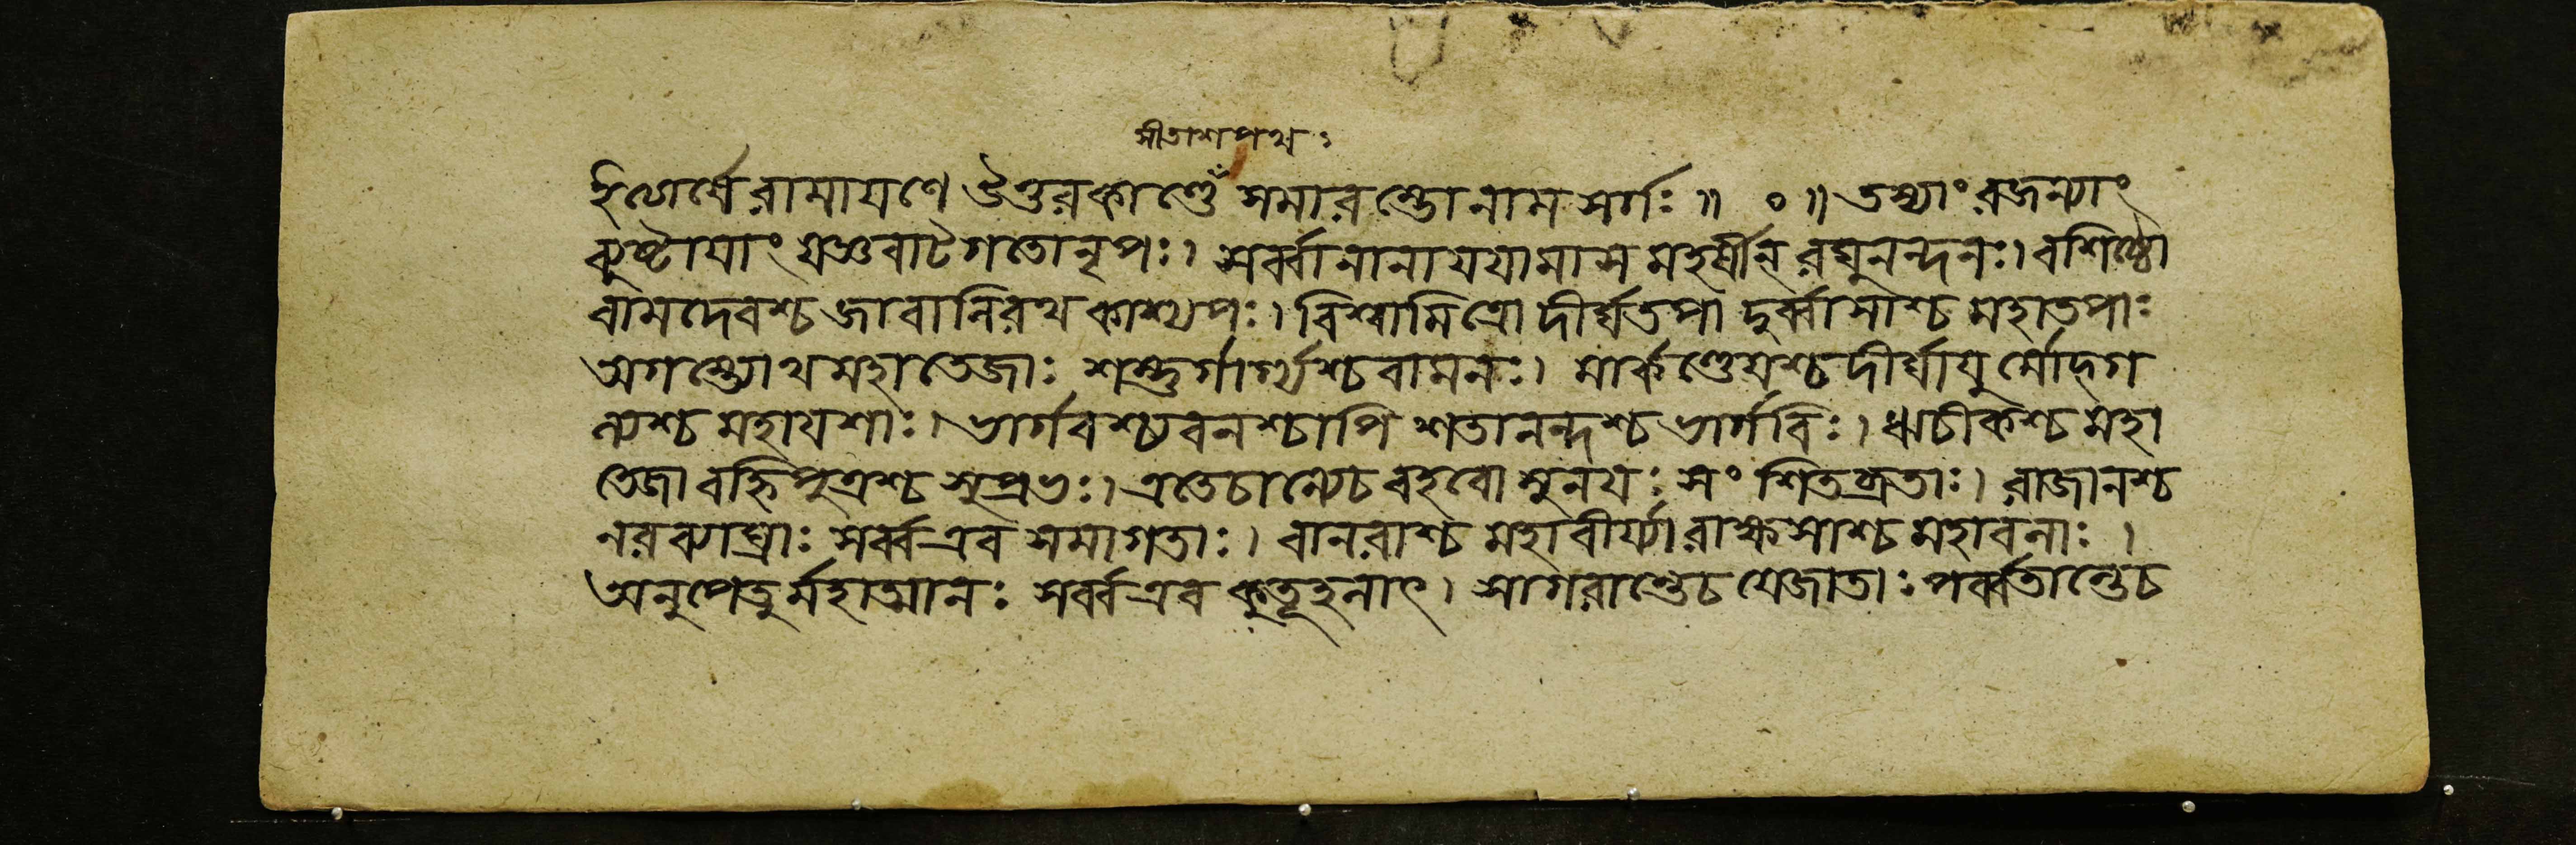 সীতাশপথঃ
ইত্যার্ষে রামাযণে উত্তরকাণ্ডে সমারম্ভোনাম সর্গঃ ॥ ० ॥ তস্যাং রজন্যাং
ব্যুষ্টাযাং যজ্ঞবাটগতোনৃপঃ। সর্ব্বানানাযযামাস মহর্ষীন্ রঘুনন্দনঃ। বশিষ্ঠো
বামদেবশ্চ জাবালিরথ কাশ্যপঃ। বিশ্বামিত্রো দীর্ঘতপা দুর্ব্বাসাশ্চ মহাতপাঃ
অগস্ত্যোথমহাতেজাঃ শম্ভুর্গার্গ্যশ্চবামনঃ। মার্কণ্ডেযশ্চদীর্ঘাযু র্মোদ্গ
ল্যশ্চ মহাযশাঃ। ভার্গবশ্চ্যবনশ্চাপি শতানন্দশ্চ ভার্গবিঃ। ঋচীকশ্চ মহা
তেজা বহ্নিপুত্রশ্চ সুপ্রভঃ। এতেচান্যেচ বহবো মুনযঃ সংশিতব্রতাঃ। রাজানশ্চ
নরব্যাঘ্রাঃ সর্ব্বএব সমাগতাঃ। বানরাশ্চ মহাবীর্য্যা রাক্ষসাশ্চ মহাবলাঃ ।
অনুপেতুর্মহাত্মানঃ সর্ব্বএব কুতূহলাৎ। সাগরান্তেচ যেজাতাঃ পর্ব্বতান্তেচ